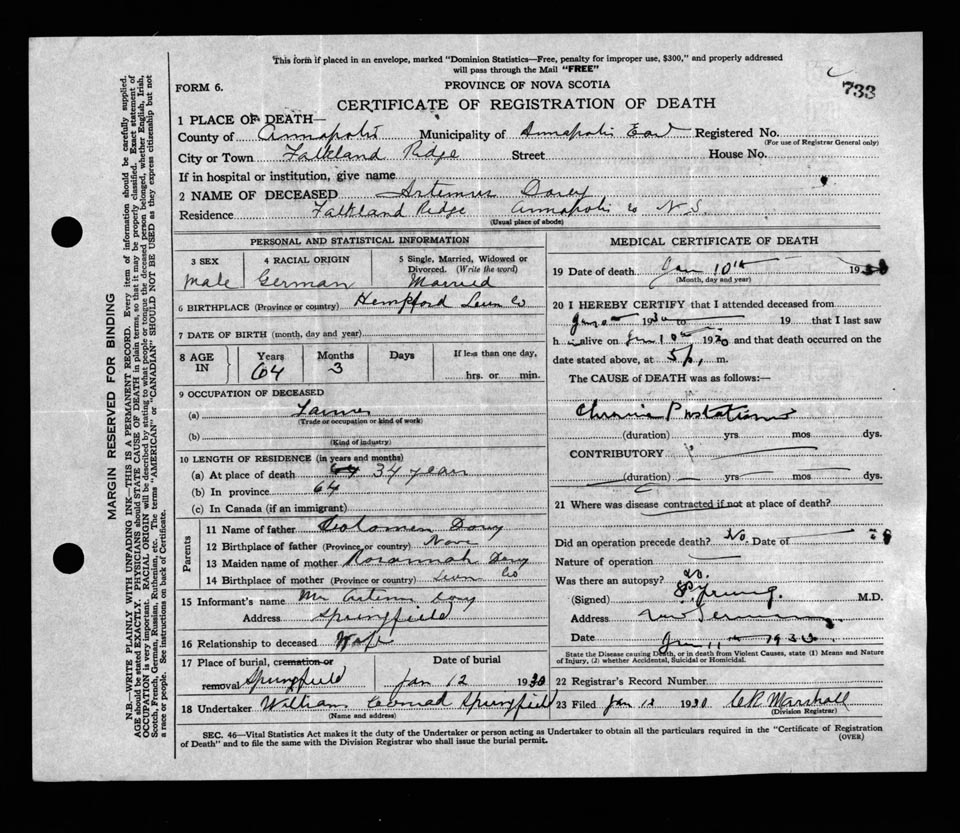 This form if placed in an envelope, marked "Dominion Statistics—Free, penalty for improper use, $300," and properly addressed
will pass through the Mail "FREE"
733
FORM 6.
PROVINCE OF NOVA SCOTIA
CERTIFICATE OF REGISTRATION OF DEATH
1 PLACE OF DEATH—
County of Annapolis Municipality of Annapolis East Registered No.
(For use of Registrar General only)
City or Town Falkland Ridge Street House No.
If in hospital or institution, give name
2 NAME OF DECEASED Artemus Dorey
Residence Falkland Ridge Annapolis Co N.S.
(Usual place of abode)
PERSONAL AND STATISTICAL INFORMATION
3 SEX 4 RACIAL ORIGIN 5 Single, Married, Widowed or
Divorced. (Write the word)
Male German Married
6 BIRTHPLACE (Province or country) Hempford Lun Co
7 DATE OF BIRTH (month, day and year)
8 AGE IN Years Months Days If less than one day,
64 3 hrs. or min.
9 OCCUPATION OF DECEASED
(a) Farmer
(Trade or occupation or kind of work)
(b)
(Kind of industry)
10 LENGTH OF RESIDENCE (in years and months)
(a) At place of death 34 years
(b) In province 64
(c) In Canada (if an immigrant)
Parents
11 Name of father Solomon Dorey
12 Birthplace of father (Province or country)
13 Maiden name of mother Rosannah Dorey
14 Birthplace of mother (Province or country) Lun Co
15 Informant's name Mrs Artemus Dorey
Address Springfield
16 Relationship to deceased Wife
17 Place of burial, cremation or Date of burial
removal Springfield Jan 12 1930
18 Undertaker William Conrad Springfield
(Name and address)
MEDICAL CERTIFICATE OF DEATH
19 Date of death Jan 10th 1930
(Month, day and year)
20 I HEREBY CERTIFY that I attended deceased from
1930 to 19 that I last saw
h alive on Jan 10th 1930 and that death occurred on the
date stated above, at 5 p. m.
The CAUSE of DEATH was as follows:—
Chronic
(duration) yrs mos dys.
CONTRIBUTORY
(duration) yrs mos dys.
21 Where was disease contracted if not at place of death?
Did an operation precede death? No. Date of
Nature of operation
Was there an autopsy? No.
(Signed) Young. M.D.
Address
Date Jan 11th 1930
State the Disease causing Death, or in death from Violent Causes, state (1) Means and
Nature of Injury, (2) whether Accidental, Suicidal or Homicidal.
22 Registrar's Record Number
23 Filed Jan 12 1930 C.R. Marshall
(Division Registrar)
SEC. 46—Vital Statistics Act makes it the duty of the Undertaker or person acting as Undertaker to obtain all the particulars required in the "Certificate of Registration
of Death" and to file the same with the Division Registrar who shall issue the burial permit.
(OVER)
MARGIN RESERVED FOR BINDING
N.B.—WRITE PLAINLY WITH UNFADING INK—THIS IS A PERMANENT RECORD. Every item of information should be carefully supplied.
AGE should be stated EXACTLY. PHYSICIANS should STATE CAUSE OF DEATH in plain terms, so that it may be properly classified. Exact statement of
OCCUPATION is very important. RACIAL ORIGIN will be described by stating to what people or tongue the deceased person belonged, whether English, Irish,
Scotch, French, German, Russian, Ruthenian, etc. The terms "AMERICAN" or "CANADIAN" SHOULD NOT BE USED as they express citizenship but not
a race or people. See instructions on back of Certificate.